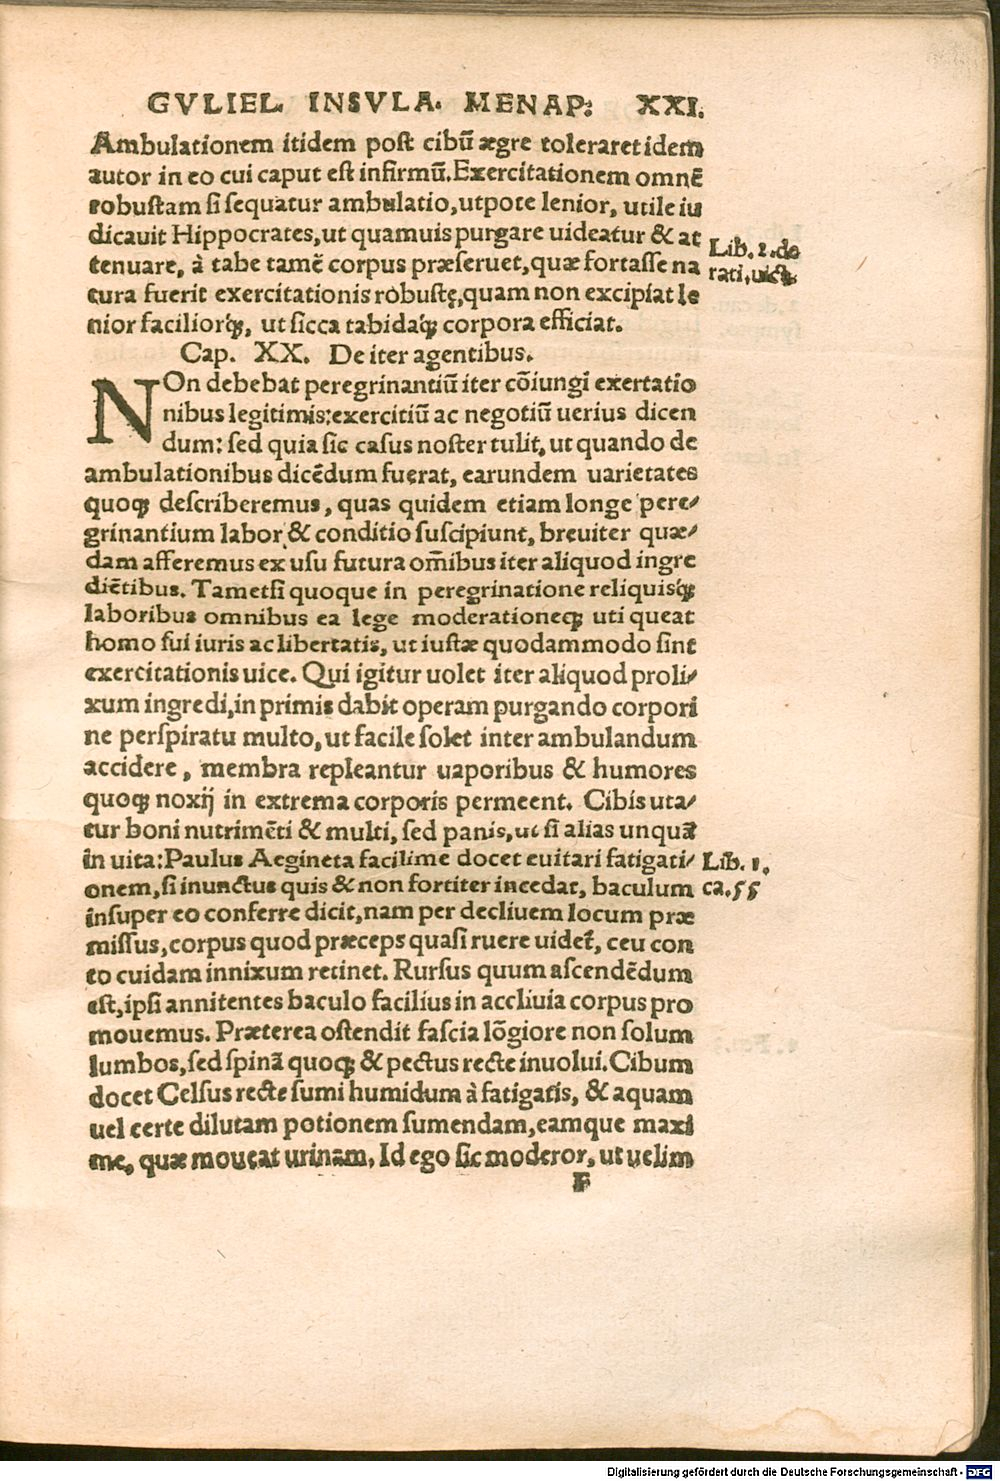 GVLIEL. INSVLA. MENAP: XXI.
Ambulationem itidem post cibū ægre toleraret idem
autor in eo cui caput est infirmū. Exercitationem omnē
robustam si sequatur ambulatio, utpote lenior, utile iu
dicauit Hippocrates, ut quamuis purgare uideatur & at
tenuare, à tabe tamē corpus præseruet, quæ fortasse na
tura fuerit exercitationis robustę, quam non excipiat le
nior faciliorq́;, ut sicca tabidaq́; corpora efficiat.
Lib. 2. de
rati. uict.
Cap. XX. De iter agentibus.
NOn debebat peregrinantiū iter cōiungi exertatio
nibus legitimis: exercitiū ac negotiū uerius dicen
dum: sed quia sic casus noster tulit, ut quando de
ambulationibus dicēdum fuerat, earundem uarietates
quoq; describeremus, quas quidem etiam longe pere-
grinantium labor & conditio suscipiunt, breuiter quæ-
dam afferemus ex usu futura om̄ibus iter aliquod ingre
diētibus. Tametsi quoque in peregrinatione reliquisq́;
laboribus omnibus ea lege moderationeq; uti queat
homo sui iuris ac libertatis, ut iustæ quodammodo sint
exercitationis uice. Qui igitur uolet iter aliquod proli-
xum ingredi, in primis dabit operam purgando corpori
ne perspiratu multo, ut facile solet inter ambulandum
accidere, membra repleantur uaporibus & humores
quoq; noxij in extrema corporis permeent. Cibis uta-
tur boni nutrimēti & multi, sed panis, ut si alias unquā
in uita: Paulus Aegineta facilime docet euitari fatigati-
onem, si inunctus quis & non fortiter incedat, baculum
Lib. 1.
ca. 55
insuper eo conferre dicit, nam per decliuem locum præ
missus, corpus quod præceps quasi ruere uidet̄, ceu con
to cuidam innixum retinet. Rursus quum ascendēdum
est, ipsi annitentes baculo facilius in accliuia corpus pro
mouemus. Præterea ostendit fascia lōgiore non solum
lumbos, sed spinā quoq; & pectus recte inuolui. Cibum
docet Celsus recte sumi humidum à fatigatis, & aquam
uel certe dilutam potionem sumendam, eamque maxi
me, quæ moueat urinam. Id ego sic moderor, ut uelim
F
Digitalisierung gefördert durch die Deutsche Forschungsgemeinschaft - DFG